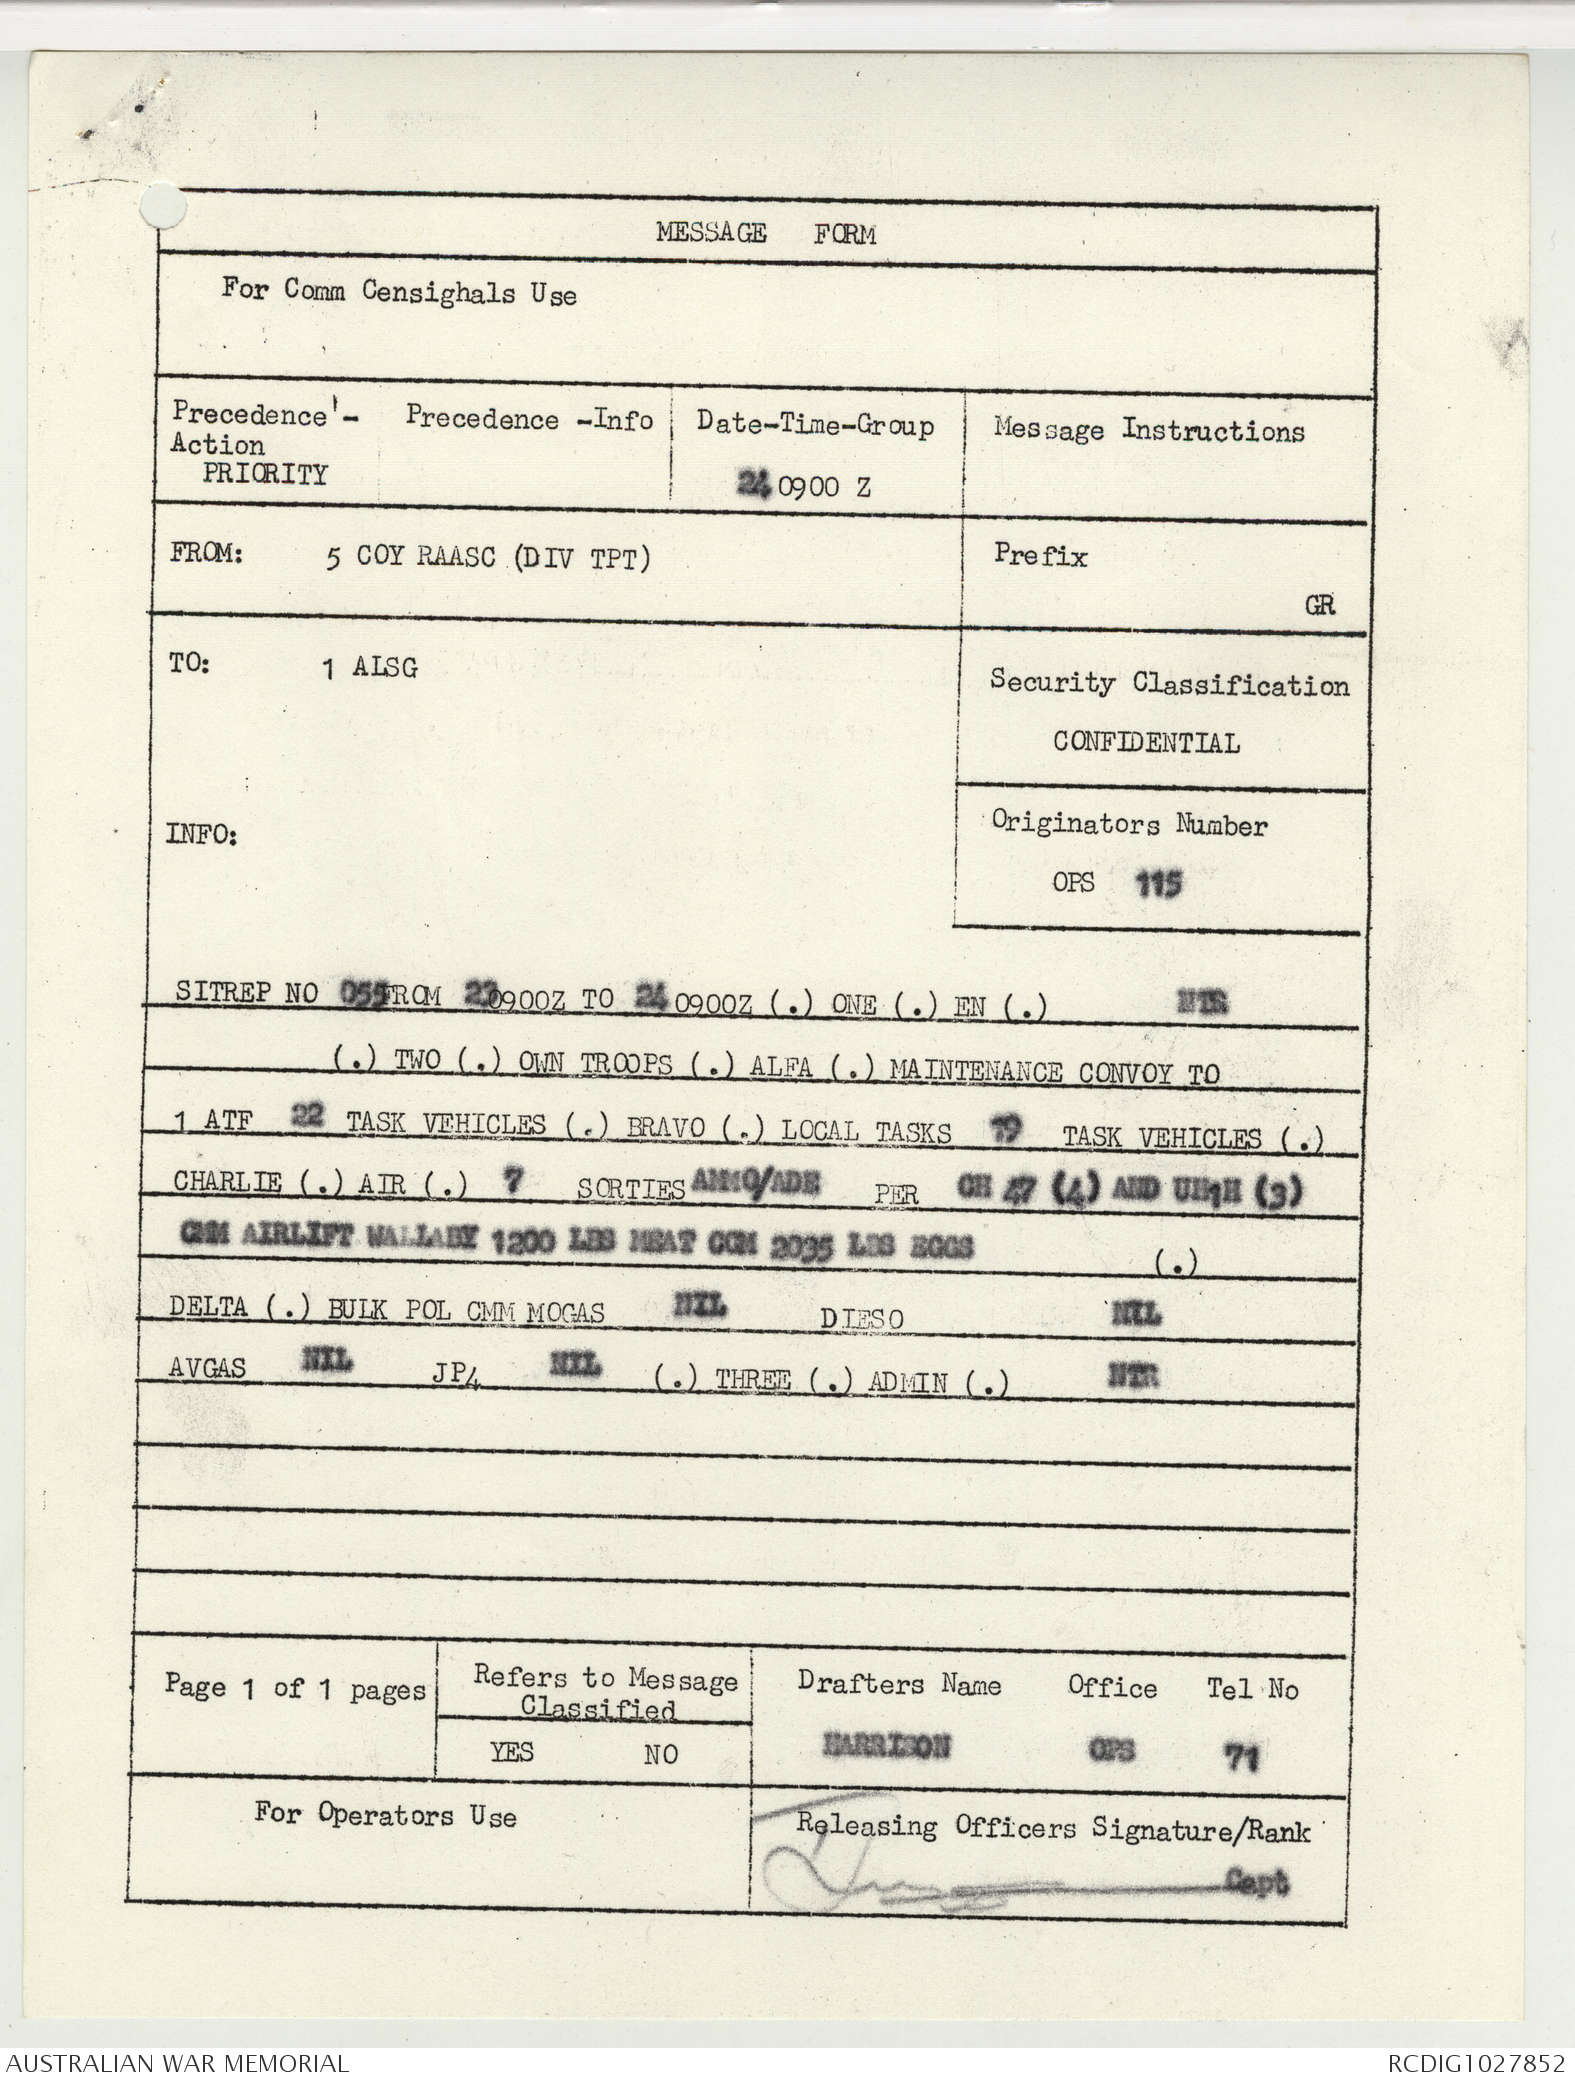 MESSAGE FORM
For Comm Censighals Use
Precedence - Precedence -Info Date-Time-Group Message Instructions
Action
PRIORITY 24 0900 Z
FROM: 5 COY RAASC (DIV TPT) Prefix
GR
TO: 1 ALSG Security Classification
CONFIDENTIAL
INFO: Originators Number
OPS 115
SITREP NO 055 FROM 230900Z TO 24 0900Z (.) ONE (.) EN (.) NTR
(.) TWO (.) OWN TROOPS (.) ALFA (.) MAINTENANCE CONVOY TO
1 ATF 22 TASK VEHICLES (.) BRAVO (.) LOCAL TASKS 79 TASK VEHICLES (.)
CHARLIE (.) AIR (.) 7 SORTIES AMMO/ADE PER CH 47 (4) AND UH1H (3)
CMM AIRLIFT WALLABY 1200 LBS MEAT CCM 2035 LBS EGGS (.)
DELTA (.) BULK POL CMM MOGAS NIL DIESO NIL
AVGAS NIL JP4 NIL (.) THREE (.) ADMIN (.) NTR
Page 1 of 1 pages Refers to Message Drafters Name Office Tel No
Classified
YES NO HARRISON OPS 71
For Operators Use Releasing Officers Signature/Rank
Capt
AUSTRALIAN WAR MEMORIAL RCDIG1027852